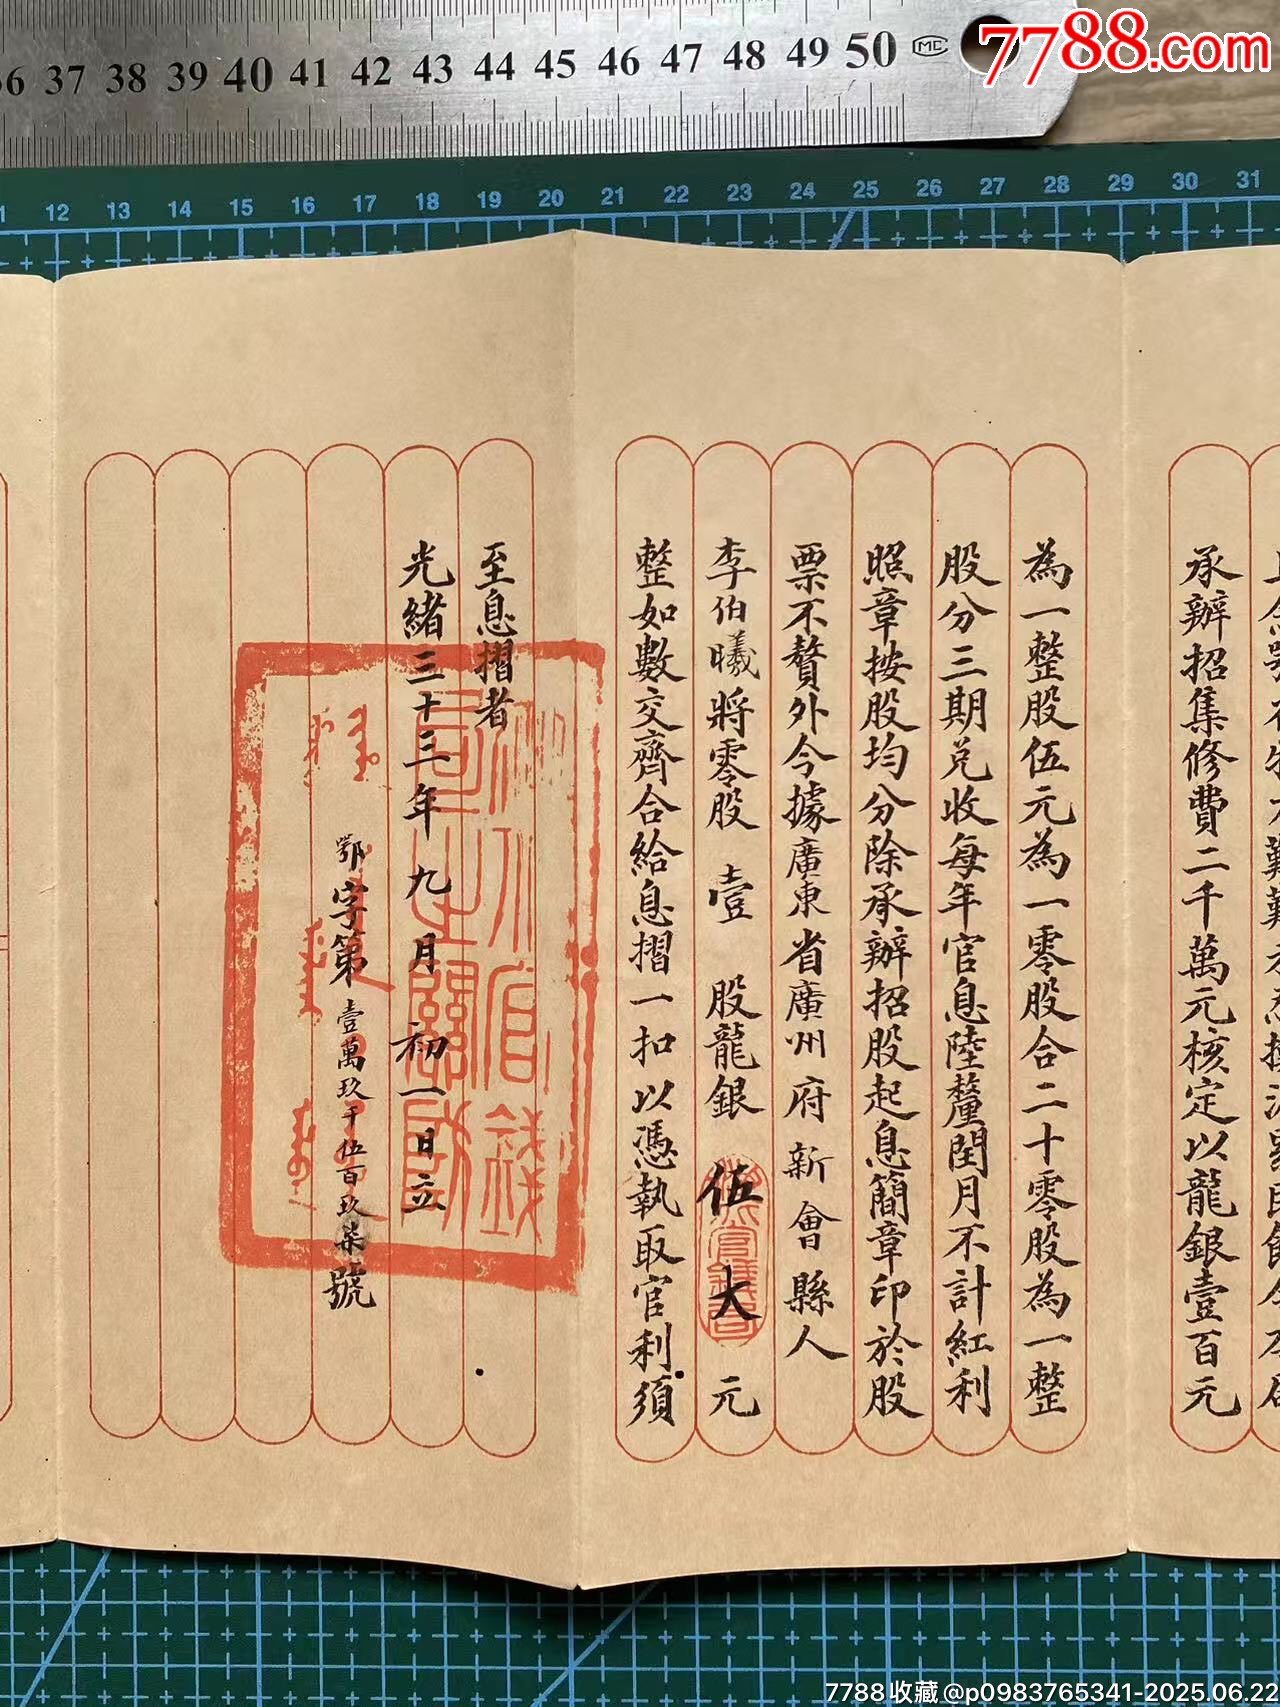 7788.com
36 37 38 39 40 41 42 43 44 45 46 47 48 49 50 MC
12 13 14 15 16 17 18 19 20 21 22 23 24 25 26 27 28 29 30 31
承辦招集修費二千萬元核定以龍銀壹百元
為一整股伍元為一零股合二十零股為一整
股分三期兌收每年官息陸釐閏月不計紅利
照章按股均分除承辦招股起息簡章印於股
票不贅外今據廣東省廣州府新會縣人
李伯曦將零股壹股龍銀伍大元
整如數交齊合給息摺一扣以憑執取官利須
至息摺者
光緒三十三年九月初一日立
鄂字第壹萬玖千伍百玖柒號
7788收藏@p0983765341-2025.06.22